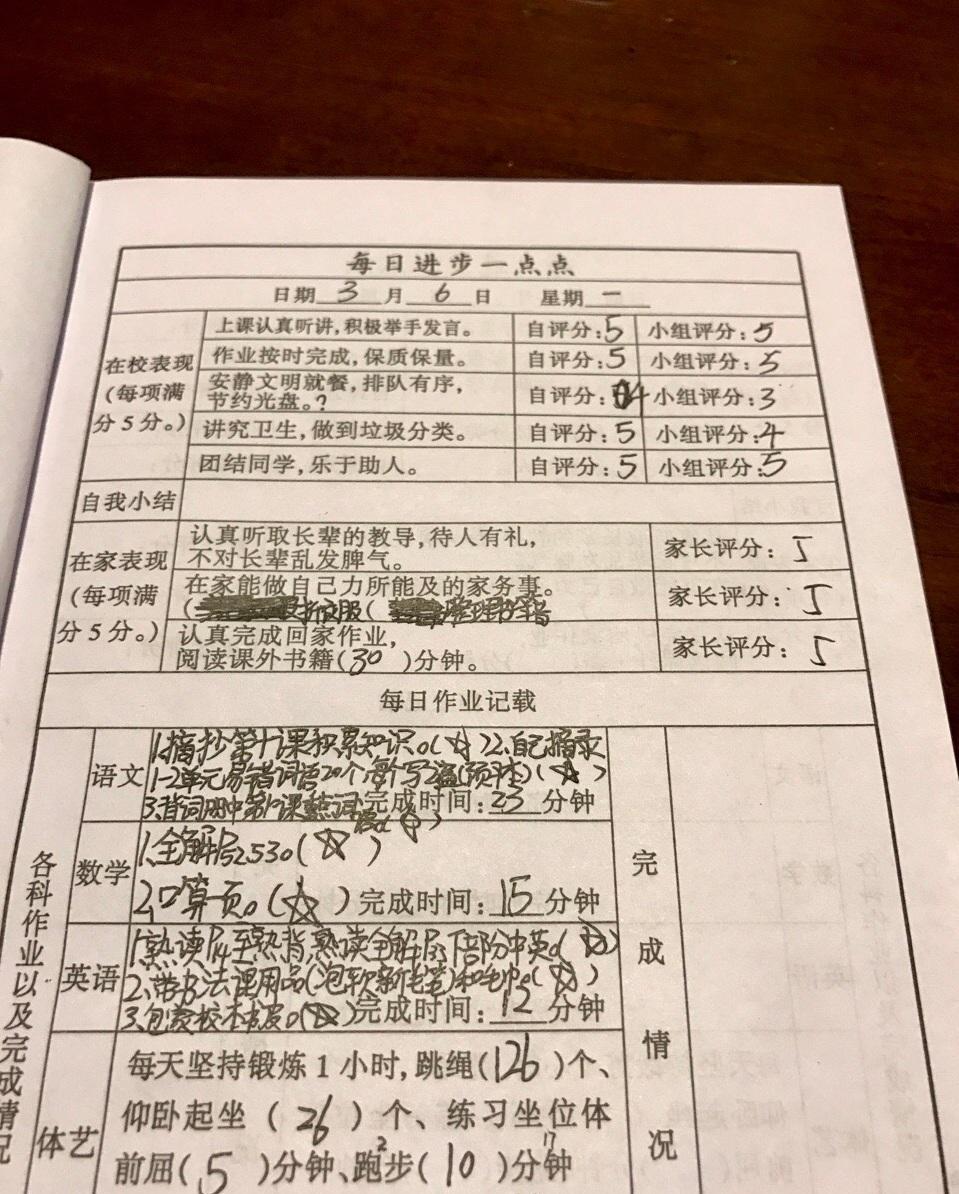 每日进步一点点
日期 3 月 6 日 星期 一
在校表现(每项满分5分。)
上课认真听讲,积极举手发言。 自评分:5 小组评分:5
作业按时完成,保质保量。 自评分:5 小组评分:5
安静文明就餐,排队有序,
节约光盘。? 自评分:4 小组评分:3
讲究卫生,做到垃圾分类。 自评分:5 小组评分:4
团结同学,乐于助人。 自评分:5 小组评分:5
自我小结
在家表现(每项满分5分。)
认真听取长辈的教导,待人有礼,
不对长辈乱发脾气。 家长评分:5
在家能做自己力所能及的家务事。
(折衣服( 整理书 家长评分:5
认真完成回家作业,
阅读课外书籍(30)分钟。 家长评分:5
每日作业记载
各科作业以及完成情况
语文
1.摘抄第十课积累知识。(☆)2.自己摘录
1-2单元易错词语20个每个写2遍( )(☆)
3.背词册中第 课 词语。(☆) 完成时间:25分钟
数学
1.全解P52.53。(☆)
2.口算一页。(☆) 完成时间:15分钟
英语
1.熟读P4至熟背,熟读全解 下部分中英。(☆)
2.带书法课用品(泡软新毛笔)和毛巾。(☆)
3.包 校本书皮。(☆) 完成时间:12分钟
完成情况
体艺
每天坚持锻炼1小时,跳绳(126)个、
仰卧起坐(26)个、练习坐位体
前屈(5)分钟、跑步(10)分钟